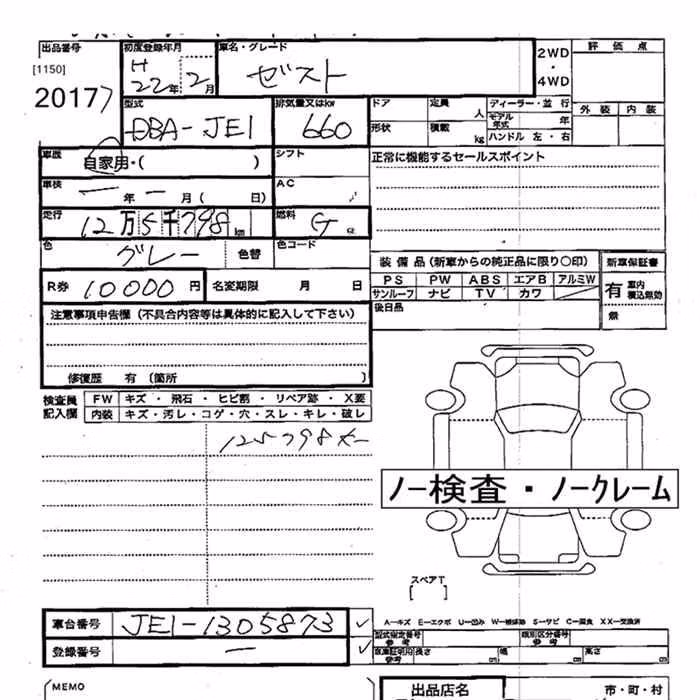 出品番号
[1150]
20177
初度登録年月
H
22年 2月
車名・グレード
ゼスト
2WD
・
4WD
評価点
外装 内装
型式
DBA-JE1
排気量又はkw
660
ドア 定員 人
形状 積載 kg
ディーラー・並行
モデル年式 年
ハンドル 左・右
車歴
自家用・( )
シフト
正常に機能するセールスポイント
車検
ー 年 ー 月 ( 日)
AC
走行
12万5千798km
燃料
G
色
グレー
色替
色コード
R券 10000 円
名変期限 月 日
装備品(新車からの純正品に限り〇印)
PS PW ABS エアB アルミW
サンルーフ ナビ TV カワ
新車保証書
有 車内積込無効
無
後日品
注意事項申告欄(不具合内容等は具体的に記入して下さい)
修復歴 有(箇所 )
検査員
記入欄
FW キズ・飛石・ヒビ割・リペア跡・X要
内装 キズ・汚レ・コゲ・穴・スレ・キレ・破レ
125798k
ノー検査・ノークレーム
スペアT
[ ]
車台番号 JE1-1305873 ✓
登録番号 ー ✓
A―キズ E―エクボ U―凹み W―補修跡 S―サビ C―腐食 XX―交換済
型式指定番号 参考
類別区分番号 参考
車庫証明用 参考 長さ cm 幅 cm 高さ cm
MEMO
出品店名
市・町・村